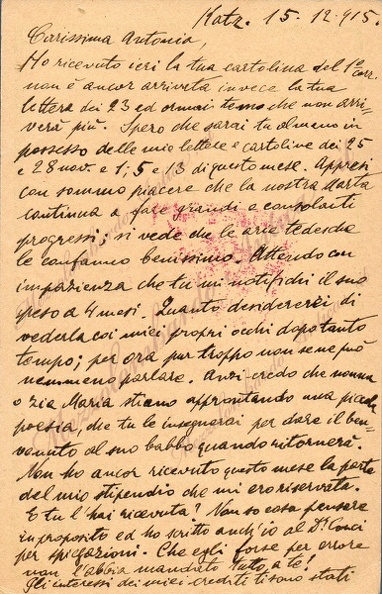 Katz. 15. 12. 915.
Carissima Antonia,
Ho ricevuto ieri la tua cartolina del 1° corr.
non è ancor arrivata invece la tua
lettera dei 23 ed ormai temo che non arri-
verà più. Spero che sarai tu almeno in
possesso delle mie lettere e cartoline dei 25
e 28 nov. e 1, 5 e 13 di questo mese. Appresi
con sommo piacere che la nostra Marta
continua a fare grandi e consolanti
progressi; si vede che le arie tedesche
le confanno benissimo. Attendo con
impazienza che tu mi notifichi il suo
peso a 4 mesi. Quanto desidererei di
vederla coi miei propri occhi dopo tanto
tempo; per ora pur troppo non se ne può
nemmeno parlare. Anzi credo che nonna
o zia Maria stiano approntando una piccola
poesia, che tu le insegnarai per dare il ben-
venuto al suo babbo quando ritornerà.
Non ho ancor ricevuto questo mese la parte
del mio stipendio che mi ero riservata.
E tu l'hai ricevuta? Non so cosa pensare
in proposito ed ho scritto anch'io al Dr. Conci
per spiegazioni. Che egli forse per errore
non l'abbia mandato tutto a te!
Gli interessi dei miei crediti ti sono stati